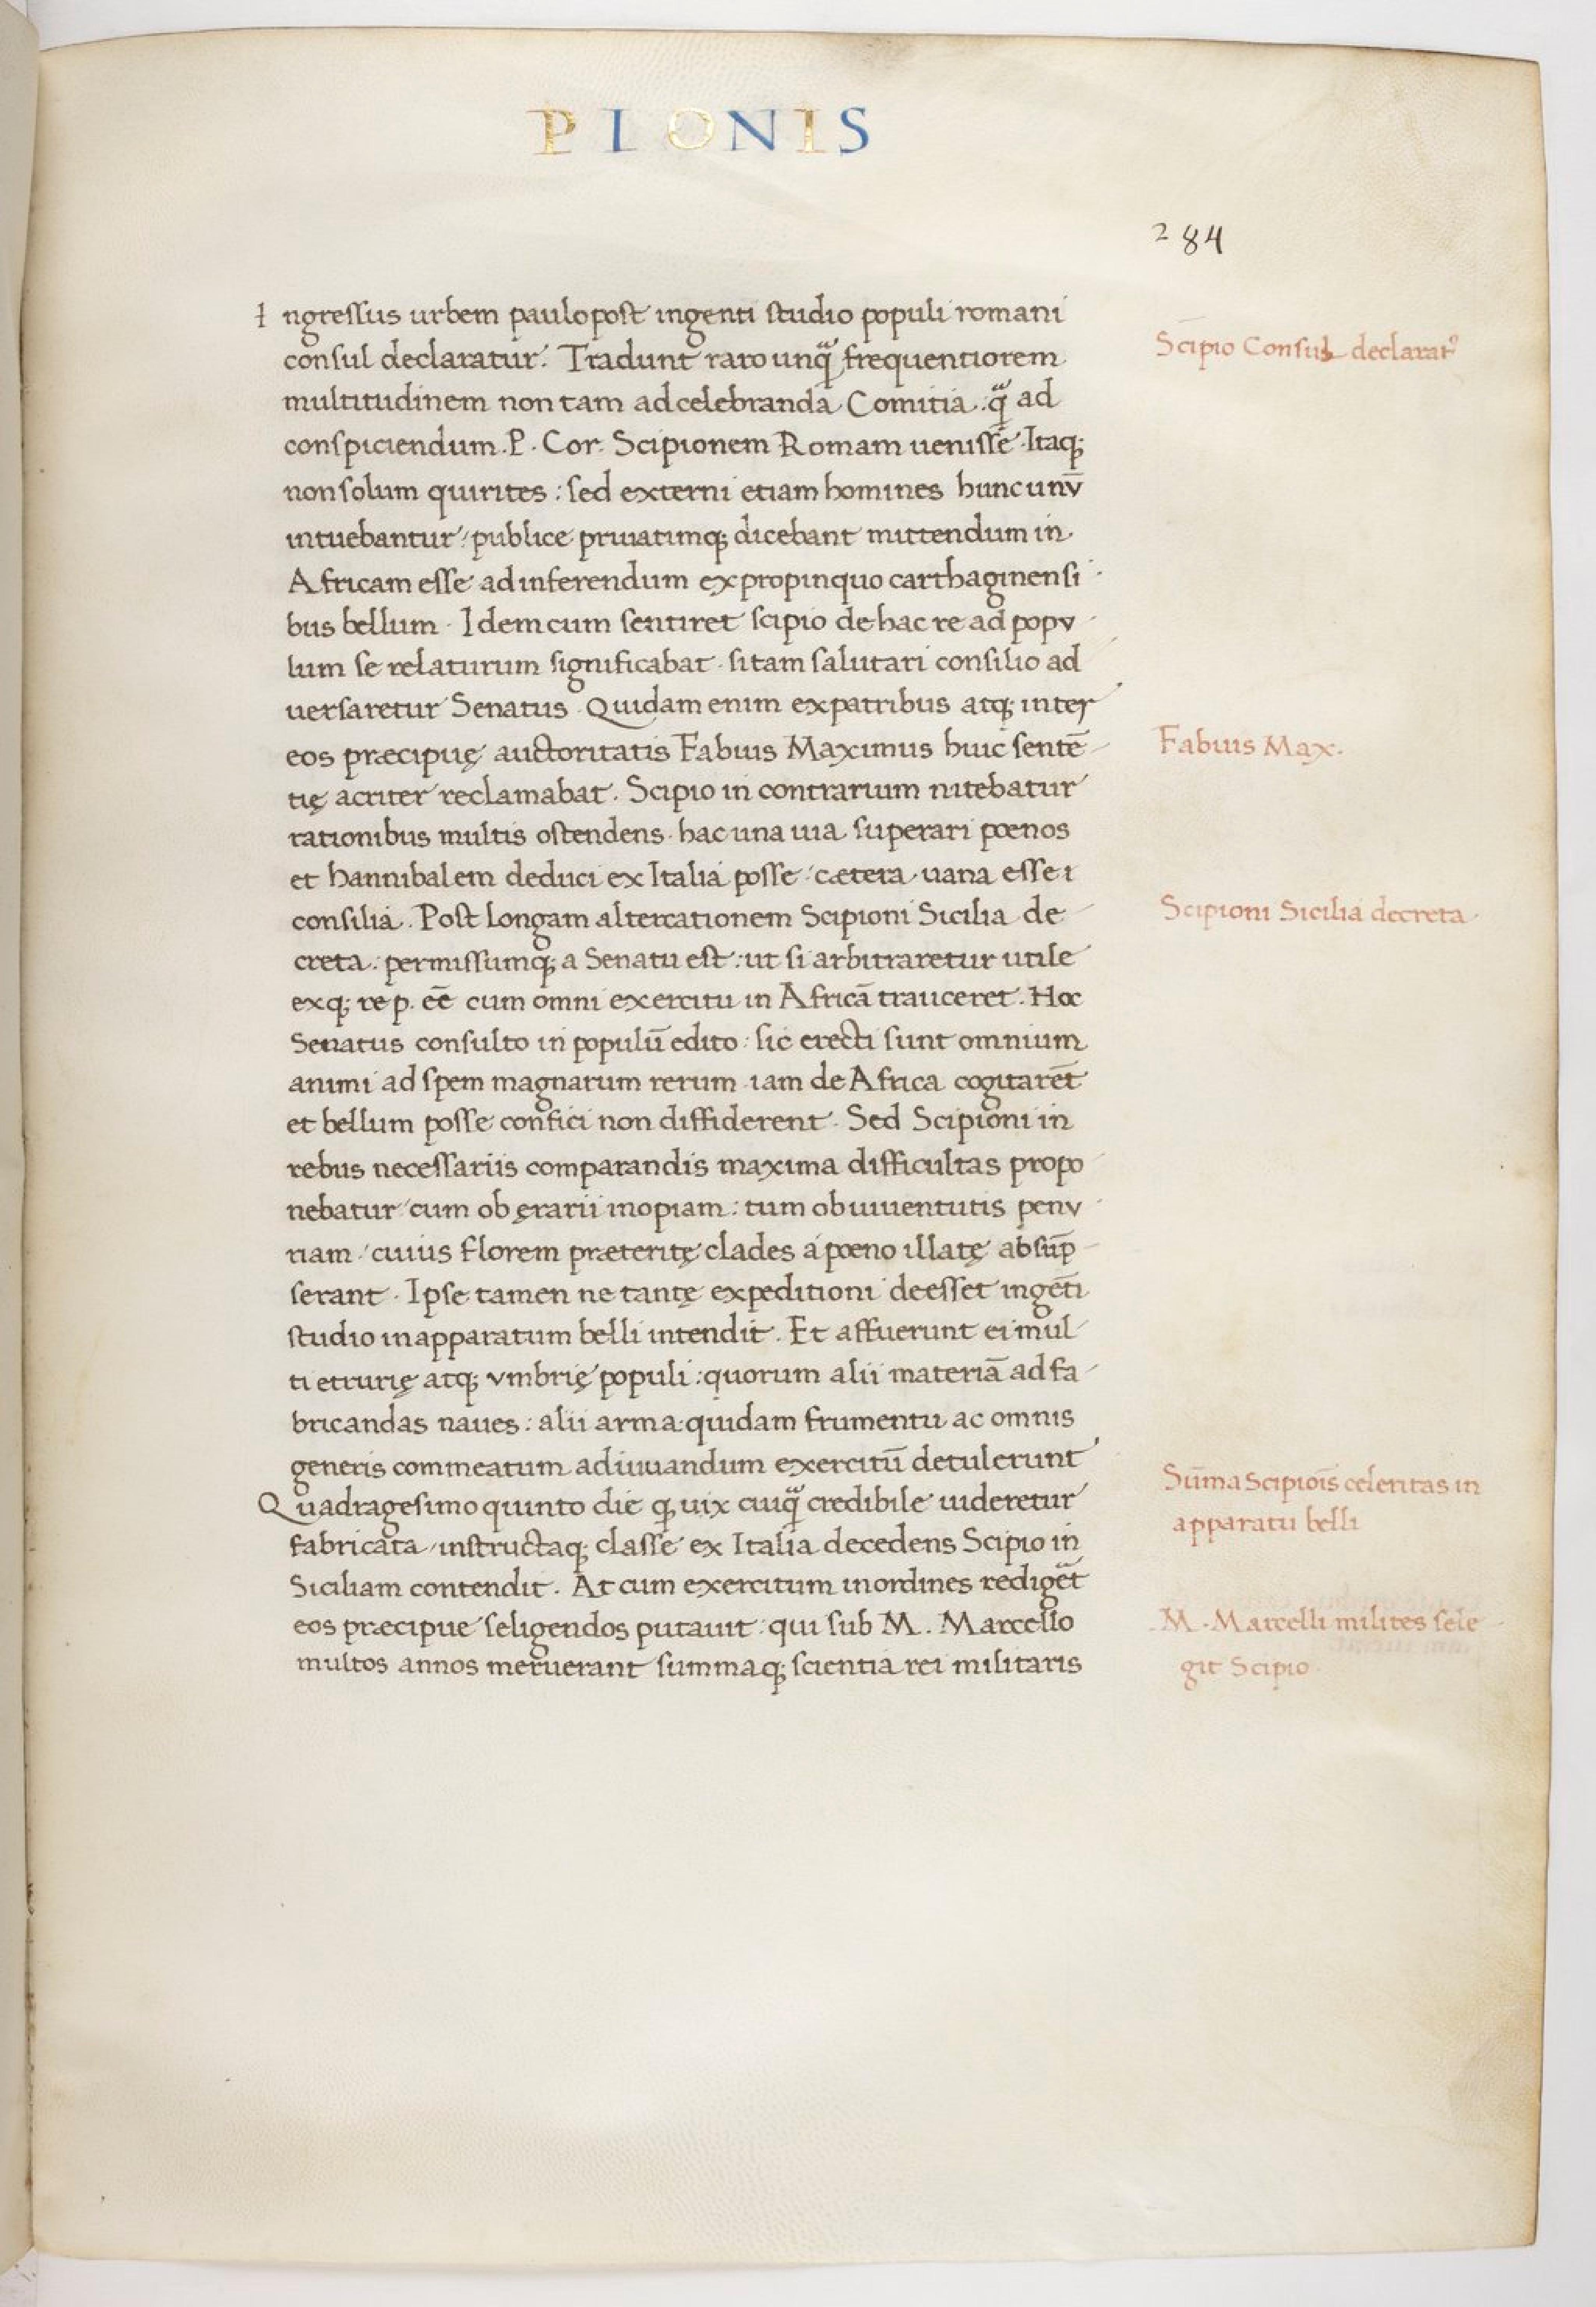 PIONIS
284
Ingressus urbem paulo post ingenti studio populi romani
consul declaratur. Tradunt raro unq̃ frequentiorem
multitudinem non tam ad celebranda Comitia: q̃ ad
conspiciendum P. Cor. Scipionem Romam uenisse. Itaq;
non solum quirites: sed externi etiam homines hunc unv̄
intuebantur: publice priuatimq; dicebant mittendum in
Africam esse ad inferendum ex propinquo carthaginensi
bus bellum. Idem cum sentiret scipio de hac re ad popv
lum se relaturum significabat. si tam salutari consilio ad
uersaretur Senatus. Quidam enim ex patribus atq; inter
eos præcipuę auctoritatis Fabius Maximus huic sentē
tię acriter reclamabat. Scipio in contrarium nitebatur
rationibus multis ostendens. hac una uia superari pœnos
et hannibalem deduci ex Italia posse: cætera uana esse
consilia. Post longam altercationem Scipioni Sicilia de
creta: permissumq; a Senatu est: ut si arbitraretur utile
exq; re p. eē cum omni exercitu in Africā trauceret. Hoc
Senatus consulto in populū edito: sic erecti sunt omnium
animi ad spem magnarum rerum iam de Africa cogitarēt
et bellum posse confici non diffiderent. Sed Scipioni in
rebus necessariis comparandis maxima difficultas propo
nebatur cum ob ęrarii inopiam: tum ob iuuentutis penv
riam: cuius florem præteritę clades a pœno illatę absūp
serant. Ipse tamen ne tantę expeditioni deesset ingēti
studio in apparatum belli intendit. Et affuerunt ei mul
ti etrurię atq; vmbrię populi: quorum alii materiā ad fa
bricandas naues: alii arma: quidam frumentu ac omnis
generis commeatum adiuuandum exercitū detulerunt
Quadragesimo quinto die q; uix cuiq̃ credibile uideretur
fabricata instructaq; classe ex Italia decedens Scipio in
Siciliam contendit. At cum exercitum in ordines redigēt
eos præcipue seligendos putauit: qui sub M. Marcello
multos annos meruerant summaq; scientia rei militaris
Scipio Consul declarat᷒
Fabius Max.
Scipioni Sicilia decreta
Sūma Scipiois celeritas in
apparatu belli
M. Marcelli milites sele
git Scipio